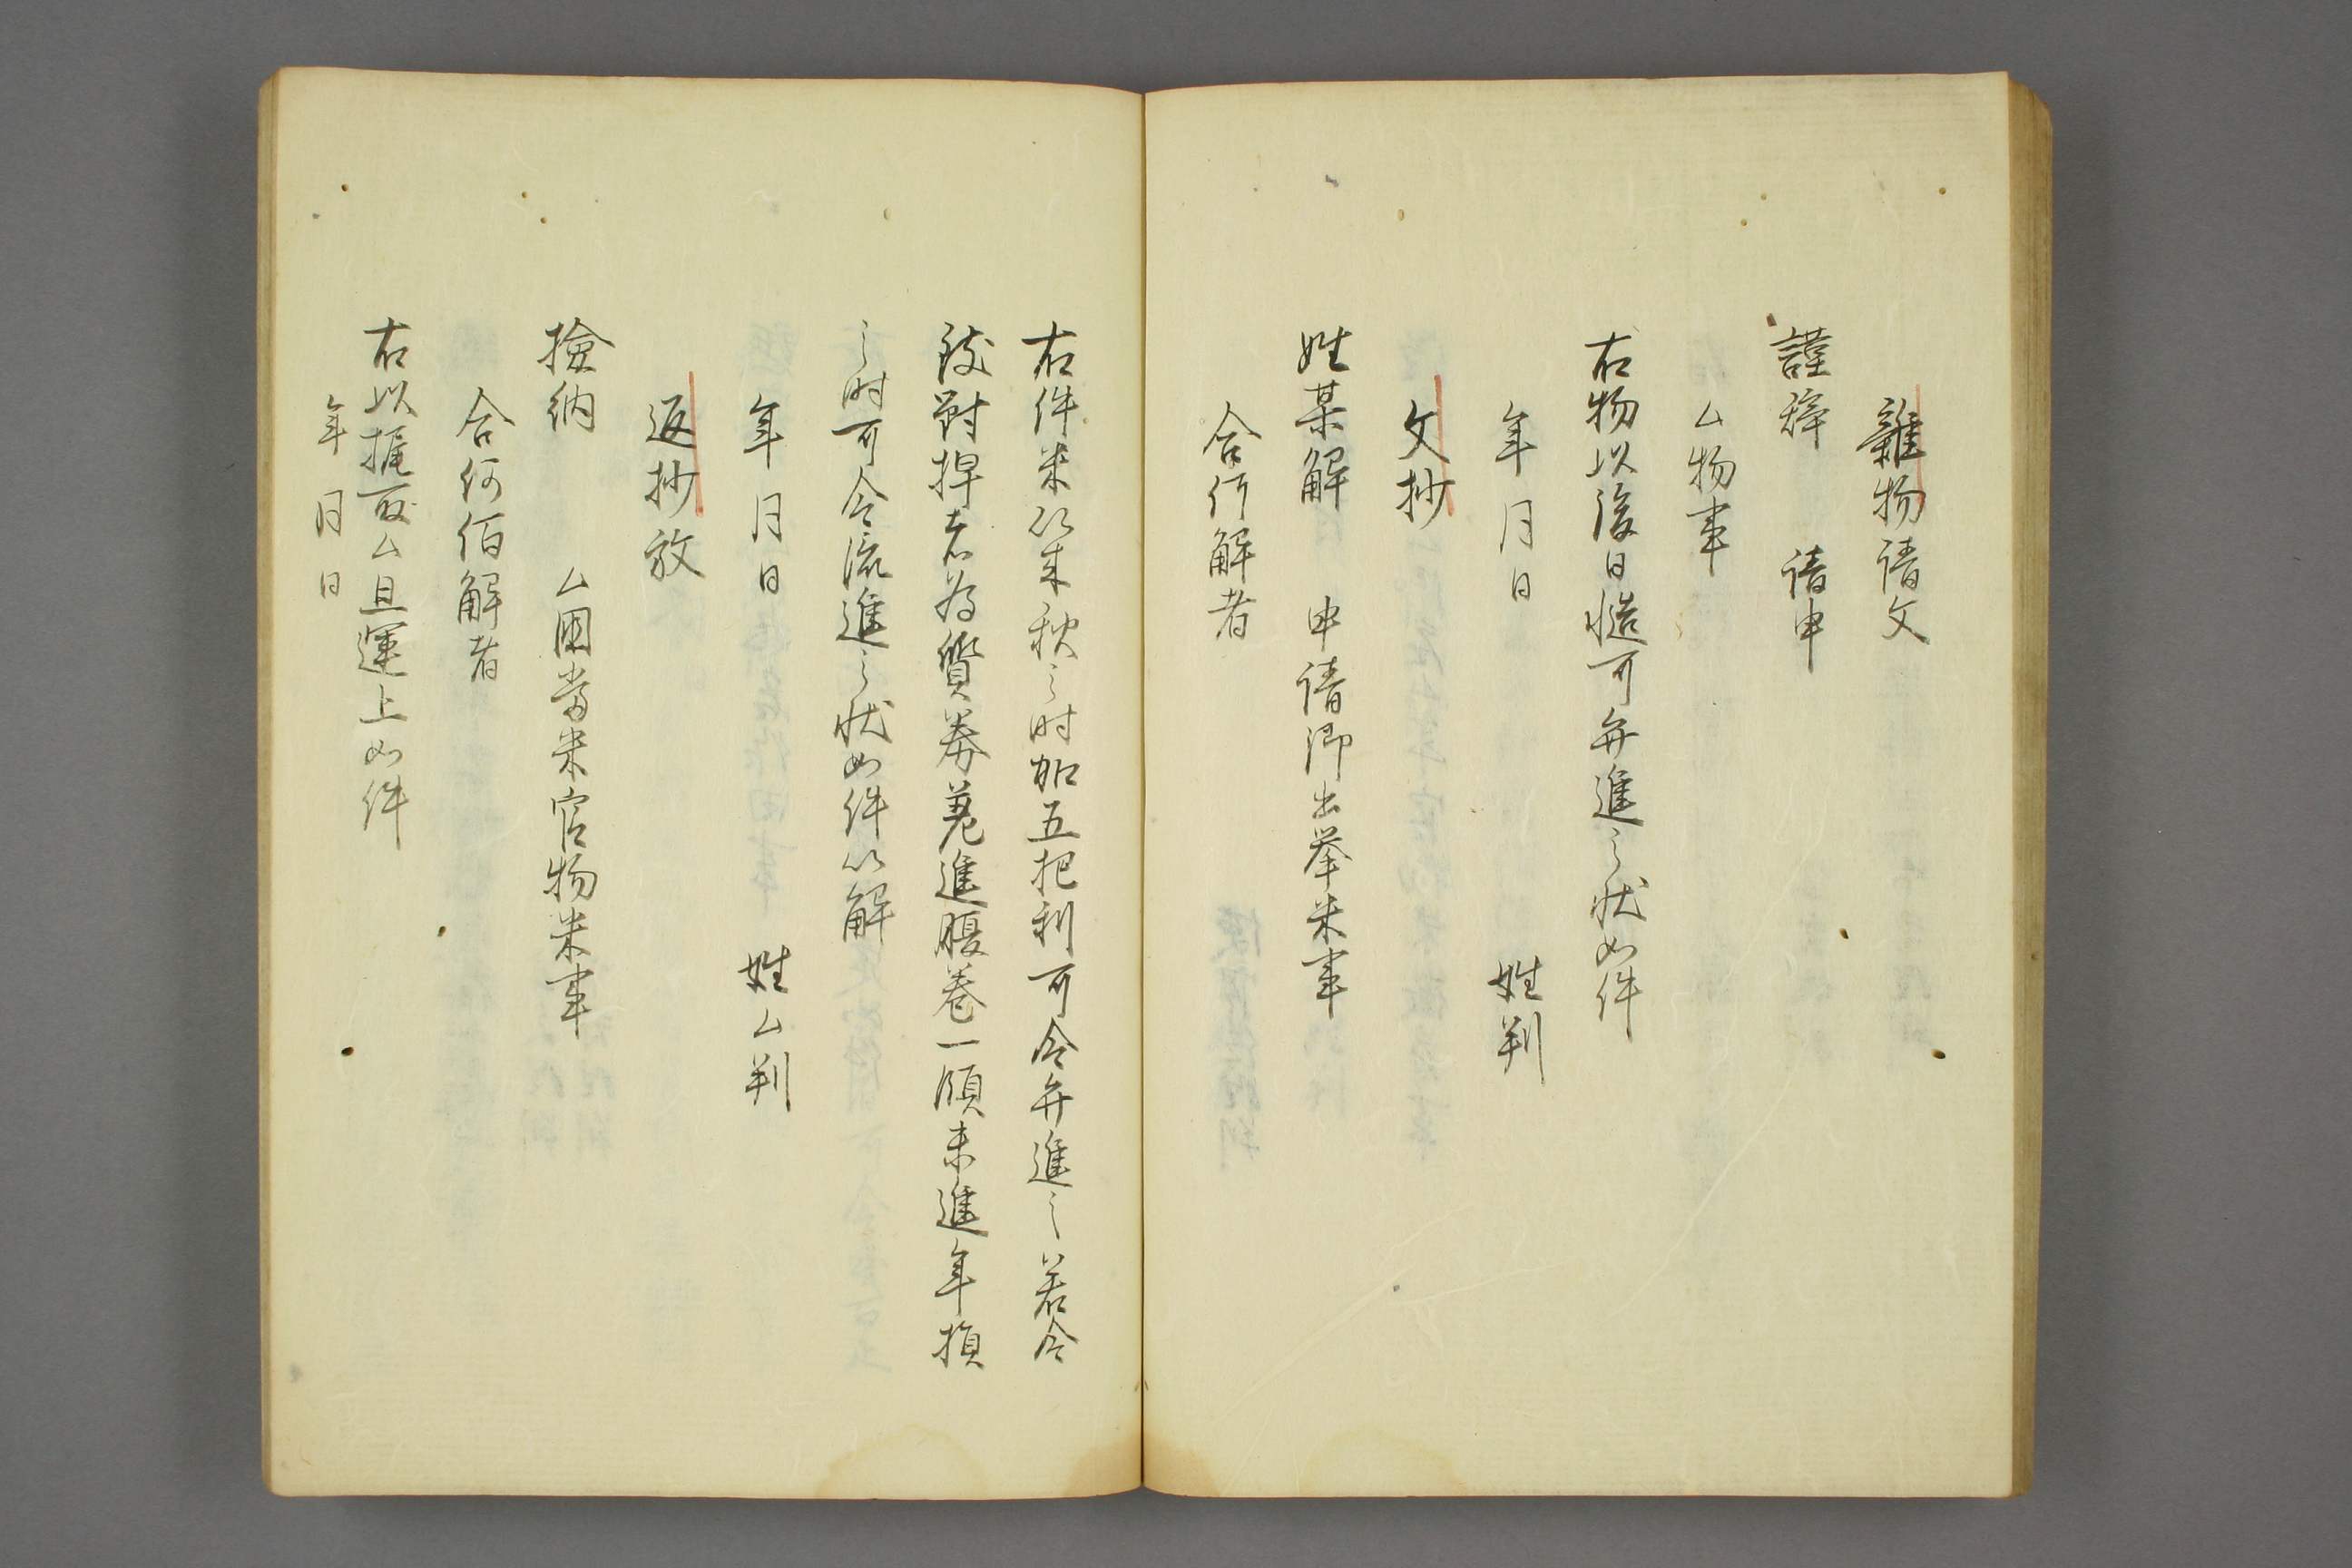 雜物請文
謹辞　請申
ム物事
右物以後日慥可弁進之状如件
年月日　姓判
文抄
姓某解　申請御出挙米事
合何解者
右件米以来秋之时加五把利可令弁進之若令
致對捍者為質券着進腹巻一領未進年損
之时可令流進之状如件以解
年月日　姓ム判
返抄放
撿納　ム国当米官物米事
合何佰解者
右以掟取ム且運上如件
年月日